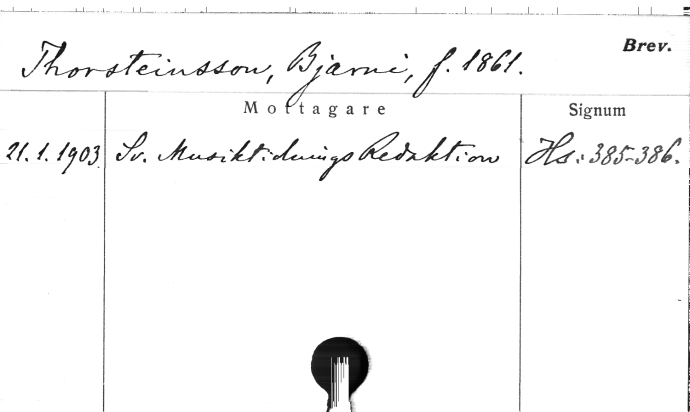 Brev.
Thorsteinsson, Bjarni, f. 1861.
Mottagare Signum
21.1.1903 Sv. Musiktidnings Redaktion Hs: 385-386.